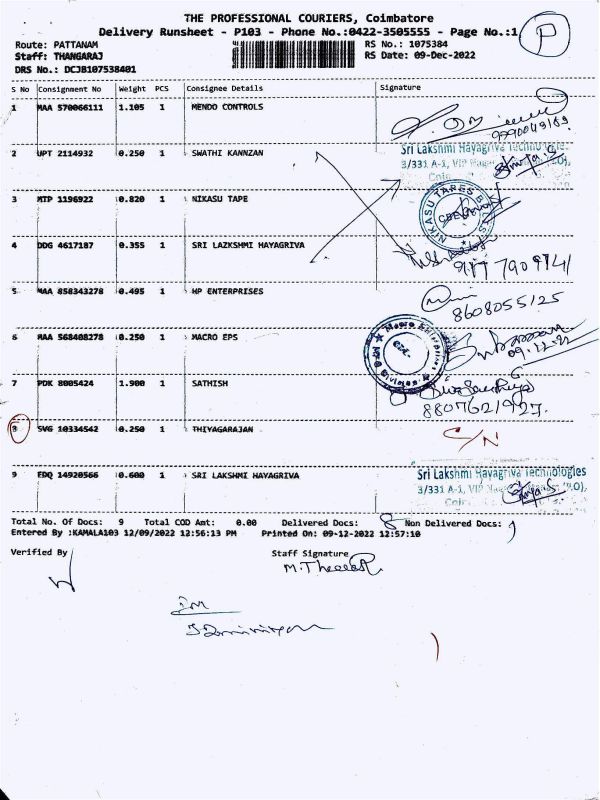 THE PROFESSIONAL COURIERS, Coimbatore
Delivery Runsheet - P103 - Phone No.:0422-3505555 - Page No.:1
P
Route: PATTANAM
RS No.: 1075384
Staff: THANGARAJ
RS Date: 09-Dec-2022
DRS No.: DCJB107538401
S No Consignment No Weight PCS Consignee Details Signature
1 MAA 570066111 1.105 1 MENDO CONTROLS
2 UPT 2114932 0.250 1 SWATHI KANNZAN
Sri Lakshmi Hayagriva Technologies
3/331 A-1, VIP
3 MTP 1196922 0.820 1 NIKASU TAPE
NIKASU TAPES
4 DDG 4617187 0.355 1 SRI LAZKSHMI HAYAGRIVA
5 MAA 858343278 0.495 1 HP ENTERPRISES
8608055125
6 MAA 568408278 0.250 1 MACRO EPS
Macro Enterprises
09.12.22
7 PDK 8005424 1.900 1 SATHISH
8807621927.
8 SVG 10334542 0.250 1 THIYAGARAJAN
S/N
9 EDQ 14920566 0.600 1 SRI LAKSHMI HAYAGRIVA
Sri Lakshmi Hayagriva Technologies
3/331 A-1, VIP
Total No. Of Docs: 9 Total COD Amt: 0.00 Delivered Docs: 8 Non Delivered Docs: 1
Entered By :KAMALA103 12/09/2022 12:56:13 PM Printed On: 09-12-2022 12:57:10
Verified By
Staff Signature